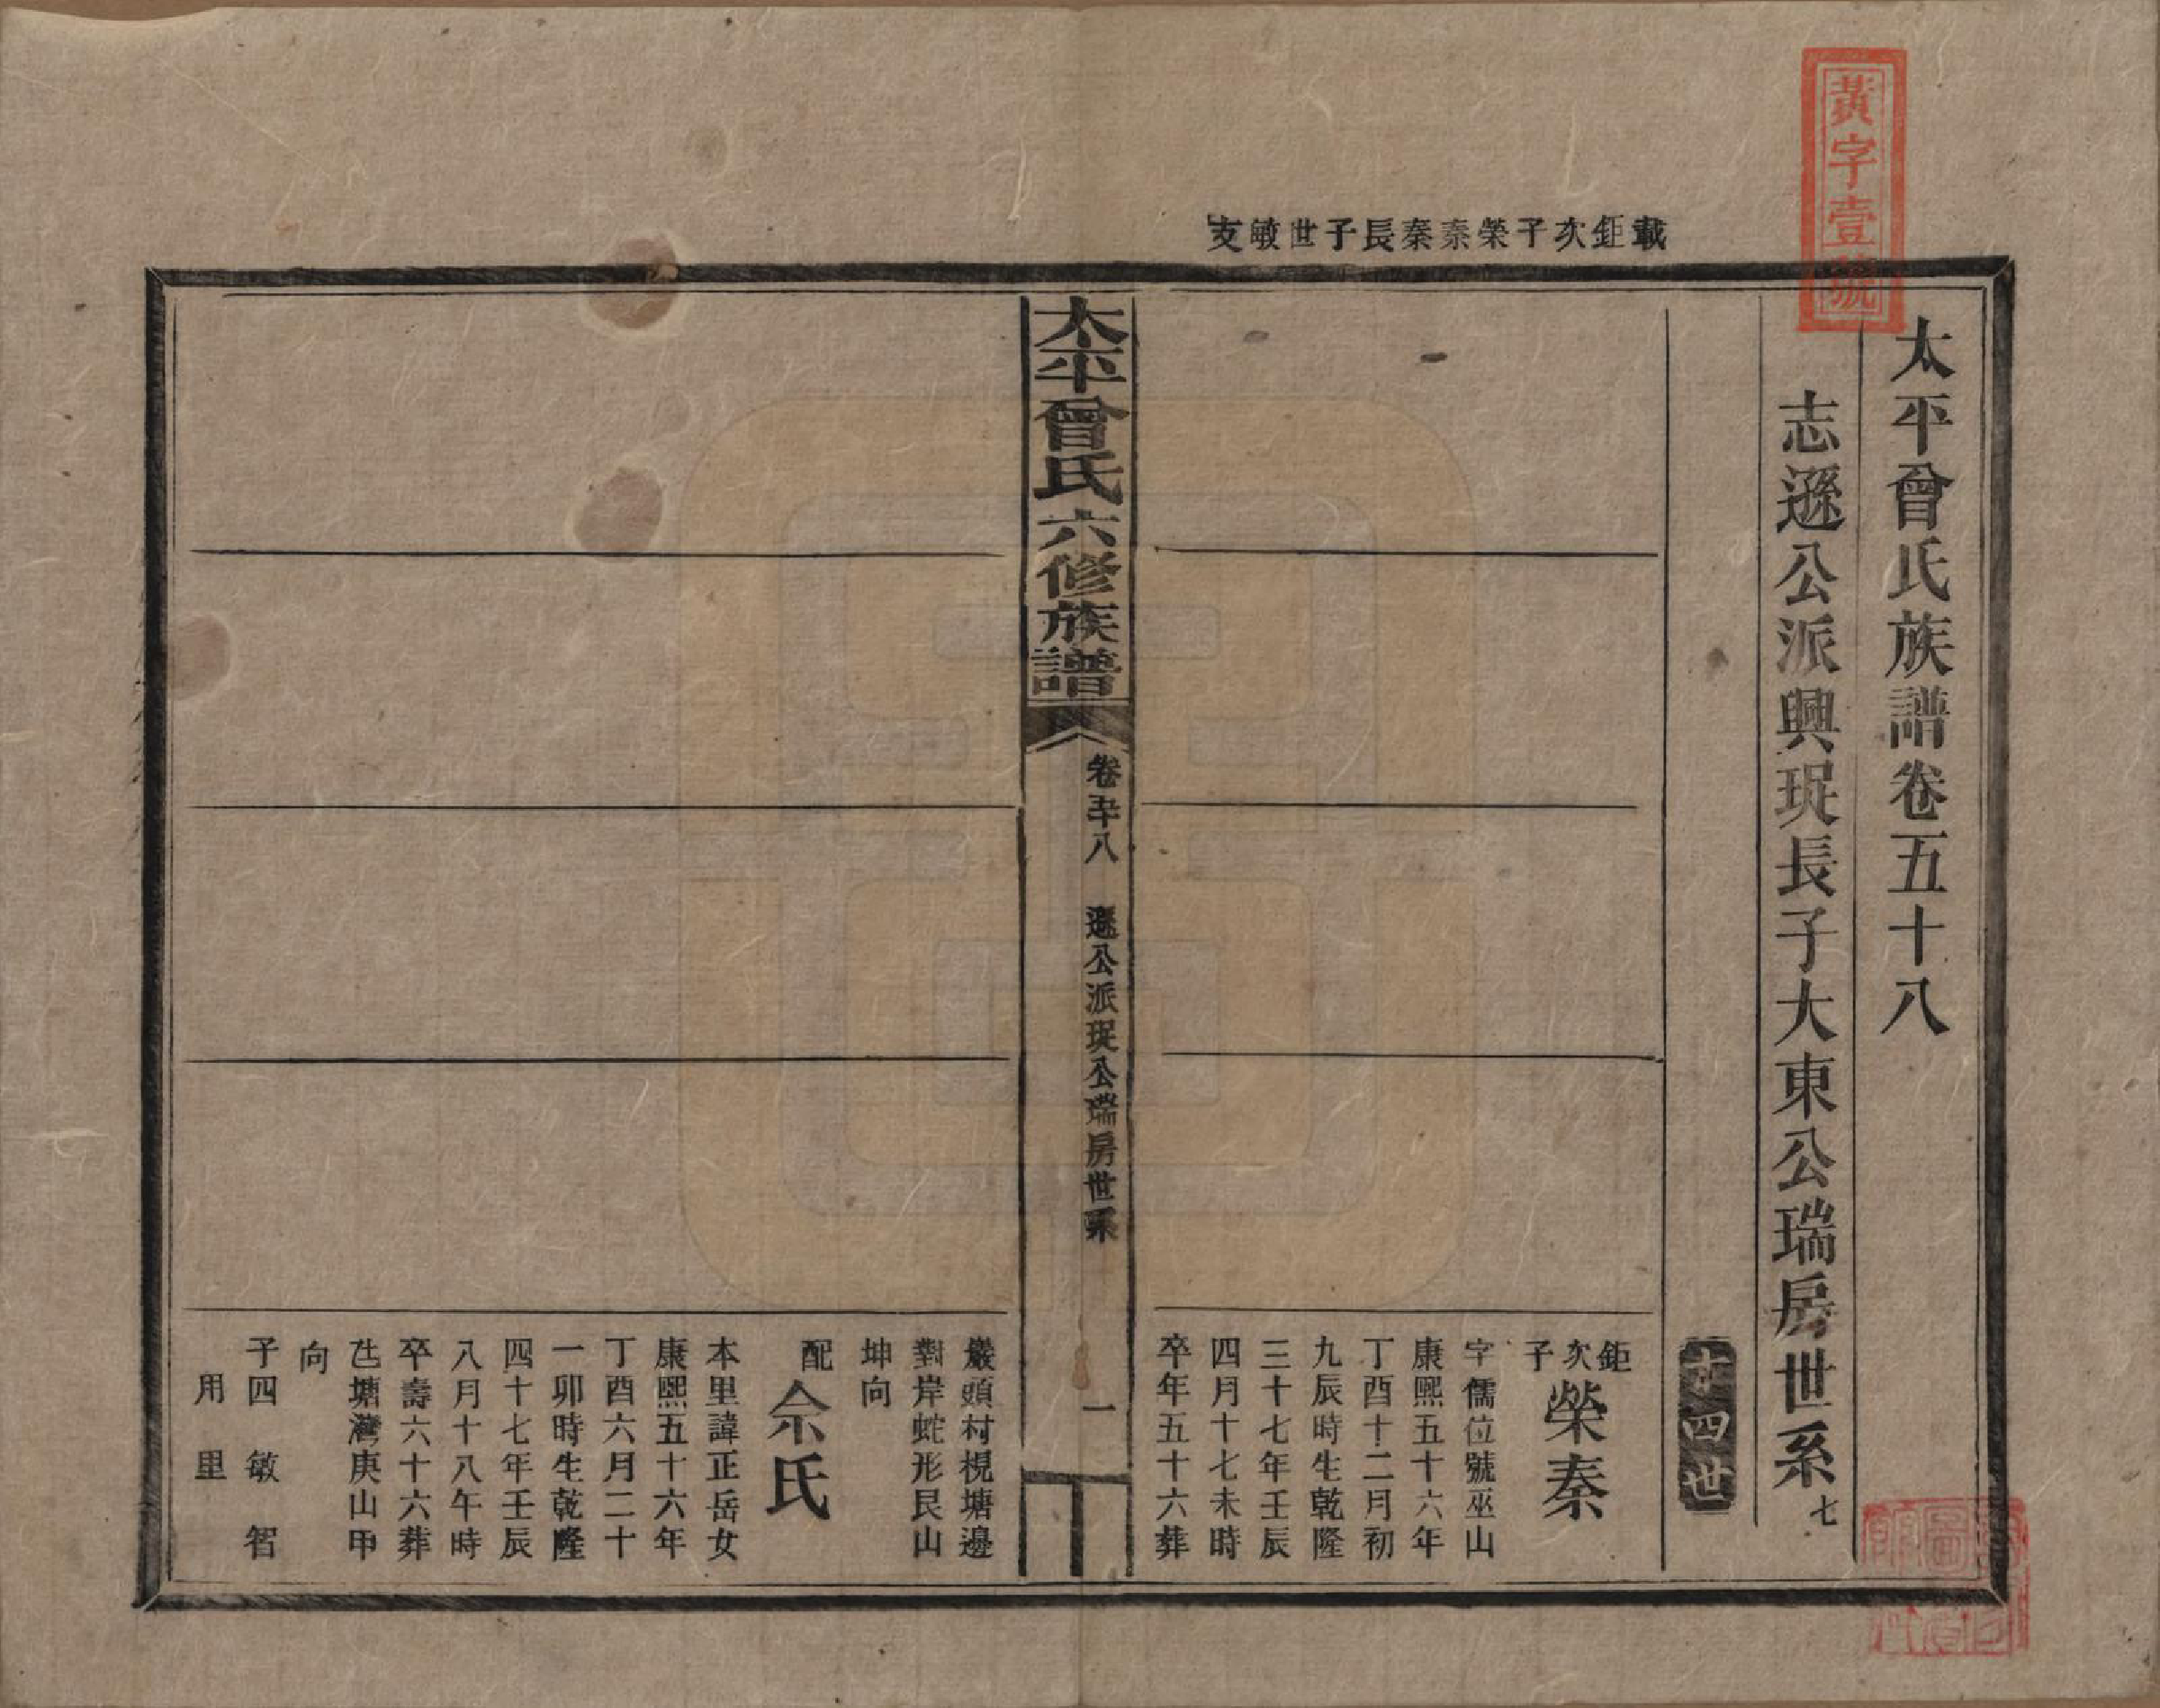 黃字壹號
太平曾氏族譜卷五十八
志遜公派興珽長子大東公瑞房世系七
十四世
載鉅次子榮秦秦長子世敏支
鉅次子榮秦
字儒位號巫山
康熙五十六年
丁酉十二月初
九辰時生乾隆
三十七年壬辰
四月十七未時
卒年五十六葬
太平曾氏六修族譜
卷五十八 遜公派珽公瑞房世系 一
巖頭村梘塘邊
對岸蛇形艮山
坤向
配佘氏
本里諱正岳女
康熙五十六年
丁酉六月二十
一卯時生乾隆
四十七年壬辰
八月十八午時
卒壽六十六葬
芭塘灣庚山甲
向
子四 敏 智
用 里